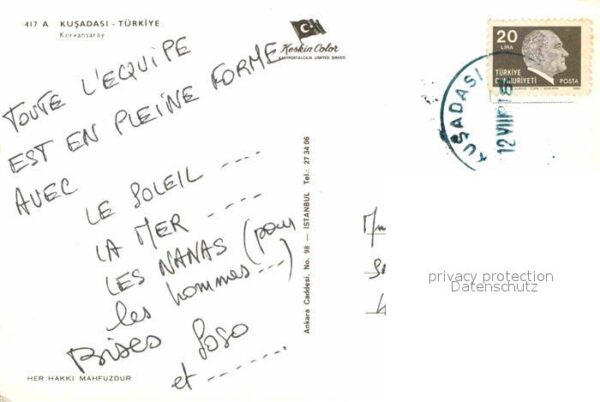 417 A KUŞADASI - TÜRKİYE
Kervansaray
Keskin Color
KARTPOSTALCILIK LIMITED ŞİRKETİ
20
LİRA
TÜRKİYE
CUMHURİYETİ
POSTA
KUŞADASI
12 VIII
TOUTE L'EQUIPE
EST EN PLEINE FORME
AVEC
LE SOLEIL ----
LA MER ----
LES NANAS (pour
les hommes...)
Bises Soso
et -------
Ankara Caddesi, No. 98 — İSTANBUL Tel.: 27 34 06
privacy protection
Datenschutz
HER HAKKI MAHFUZDUR